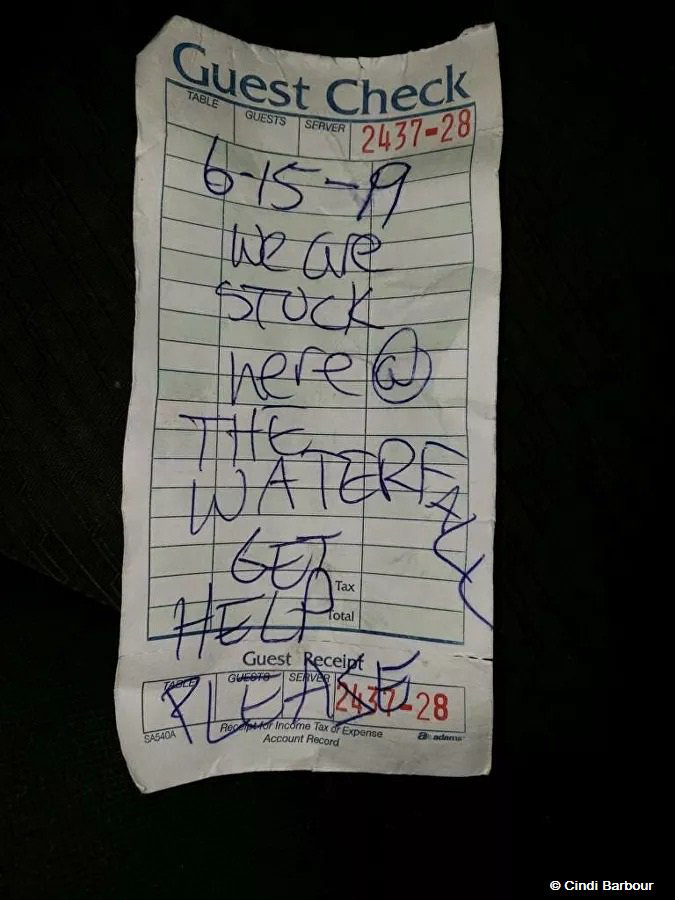 Guest Check
TABLE GUESTS SERVER 2437-28
6-15-19
We are
STUCK
here @
THE
WATERFALL
GET
Tax
HELP
Total
Guest Receipt
TABLE GUESTS SERVER 2437-28
PLEASE
Receipt for Income Tax or Expense
SA540A Account Record adams
© Cindi Barbour